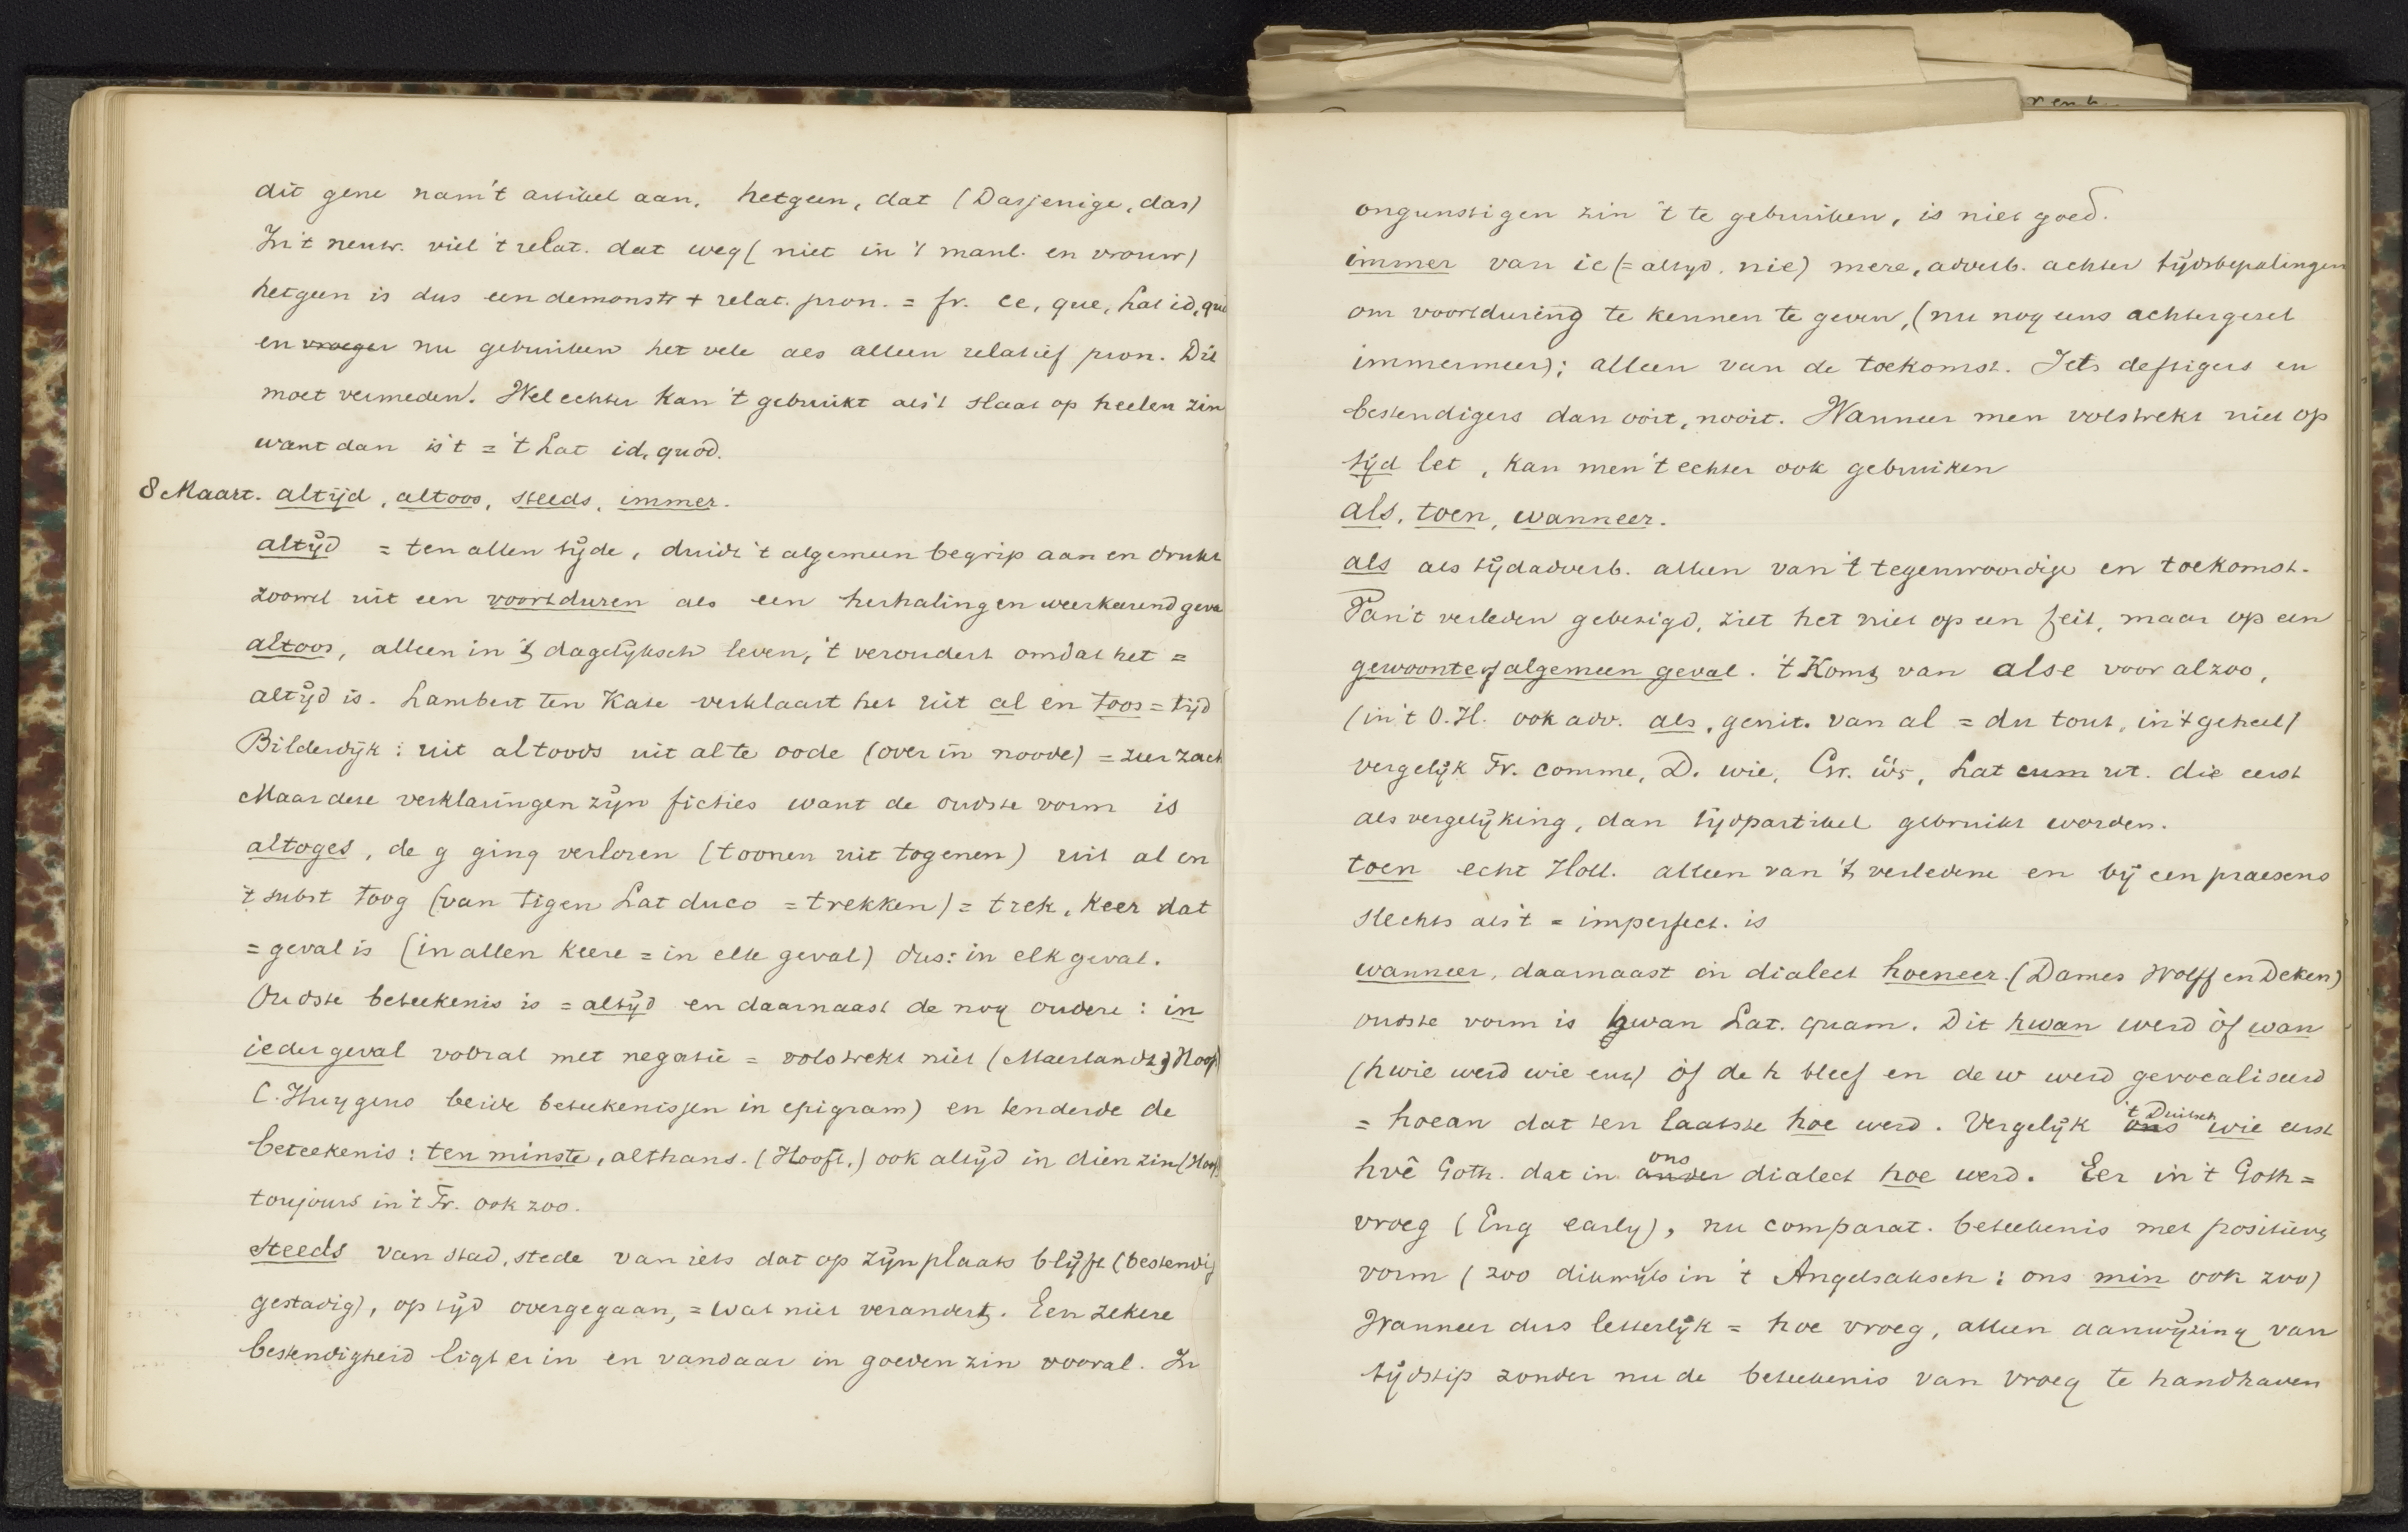 dit gene nam 't artikel aan. hetgeen, dat (Dasjenige, das)
In 't neutr. viel 't relat. dat weg (niet in 't manl. en vrouw)
hetgeen is dus een demonstr + relat. pron. = fr. ce, que, Lat id, quod
en vroeger nu gebruiken het vele als alleen relatief pron. Dit
moet vermeden. Wel echter kan 't gebruikt als 't slaat op heelen zin
want dan is 't = 't Lat id, quod.
8 Maart. altijd, altoos, steeds, immer.
altijd = ten allen tijde, duidt 't algemeen begrip aan en drukt
zoowel uit een voortduren als een herhaling en weerkeerend geval
altoos, alleen in 't dagelijksch leven, 't veroudert omdat het =
altijd is. Lambert ten Kate verklaart het uit al en toos = tijd
Bilderdijk: uit altoods uit al te oode (over in noode) = zeer zacht
Maar deze verklaringen zijn ficties want de oudste vorm is
altoges, de g ging verloren (toonen uit togenen) uit al en
't subst toog (van tigen Lat duco = trekken) = trek, keer dat
= geval is (in allen keere = in elk geval) dus: in elk geval.
Oudste beteekenis is = altijd en daarnaast de nog oudere: in
ieder geval vooral met negatie = volstrekt niet (Maerlandt, Hooft
C. Huygens beide beteekenissen in epigram) en tenderde de
beteekenis: ten minste, althans. (Hooft.) ook altijd in dien zin (Hooft)
toujours in 't Fr. ook zoo.
steeds van stad, stede van iets dat op zijn plaats blijft (bestendig
gestadig), op tijd overgegaan, = wat niet verandert. Een zekere
bestendigheid ligt er in en vandaar in goeden zin vooral. In
ongunstigen zin 't te gebruiken, is niet goed.
immer van ie (= altijd. nie) mere, adverb. achter tijdsbepalingen
om voortduring te kennen te geven, (nu nog eens achtergezet
immermeer); alleen van de toekomst. Iets deftigers en
bestendigers dan ooit, nooit. Wanneer men volstrekt niet op
tijd let, kan men 't echter ook gebruiken
als, toen, wanneer.
als als tijdadverb. alleen van 't tegenwoordige en toekomst.
Van 't verleden gebezigd, ziet het niet op een feit, maar op een
gewoonte of algemeen geval. 't Komt van alse voor alzoo,
(in 't O.H. ook adv. als, genit. van al = du tout, in 't geheel)
vergelijk Fr. comme, D. wie, Gr. ὡς, Lat cum ut. die eerst
als vergelijking, dan tijdpartikel gebruikt worden.
toen echt Holl. alleen van 't verledene en bij een praesens
slechts als 't = imperfect. is
wanneer, daarnaast in dialect hoeneer. (Dames Wolff en Deken)
oudste vorm is hwan Lat. quam. Dit hwan werd òf wan
(hwie werd wie enz) òf de h bleef en de w werd gevocaliseerd
= hoean dat ten laatste hoe werd. Vergelijk ons 't Duitsch wie eerst
hvê Goth. dat in ander ons dialect hoe werd. Eer in 't Goth =
vroeg (Eng early), nu comparat. beteekenis met positieve
vorm (zoo dikwijls in 't Angelsaksch: ons min ook zoo)
Wanneer dus letterlijk = hoe vroeg, alleen aanwijzing van
tijdstip zonder nu de beteekenis van vroeg te handhaven